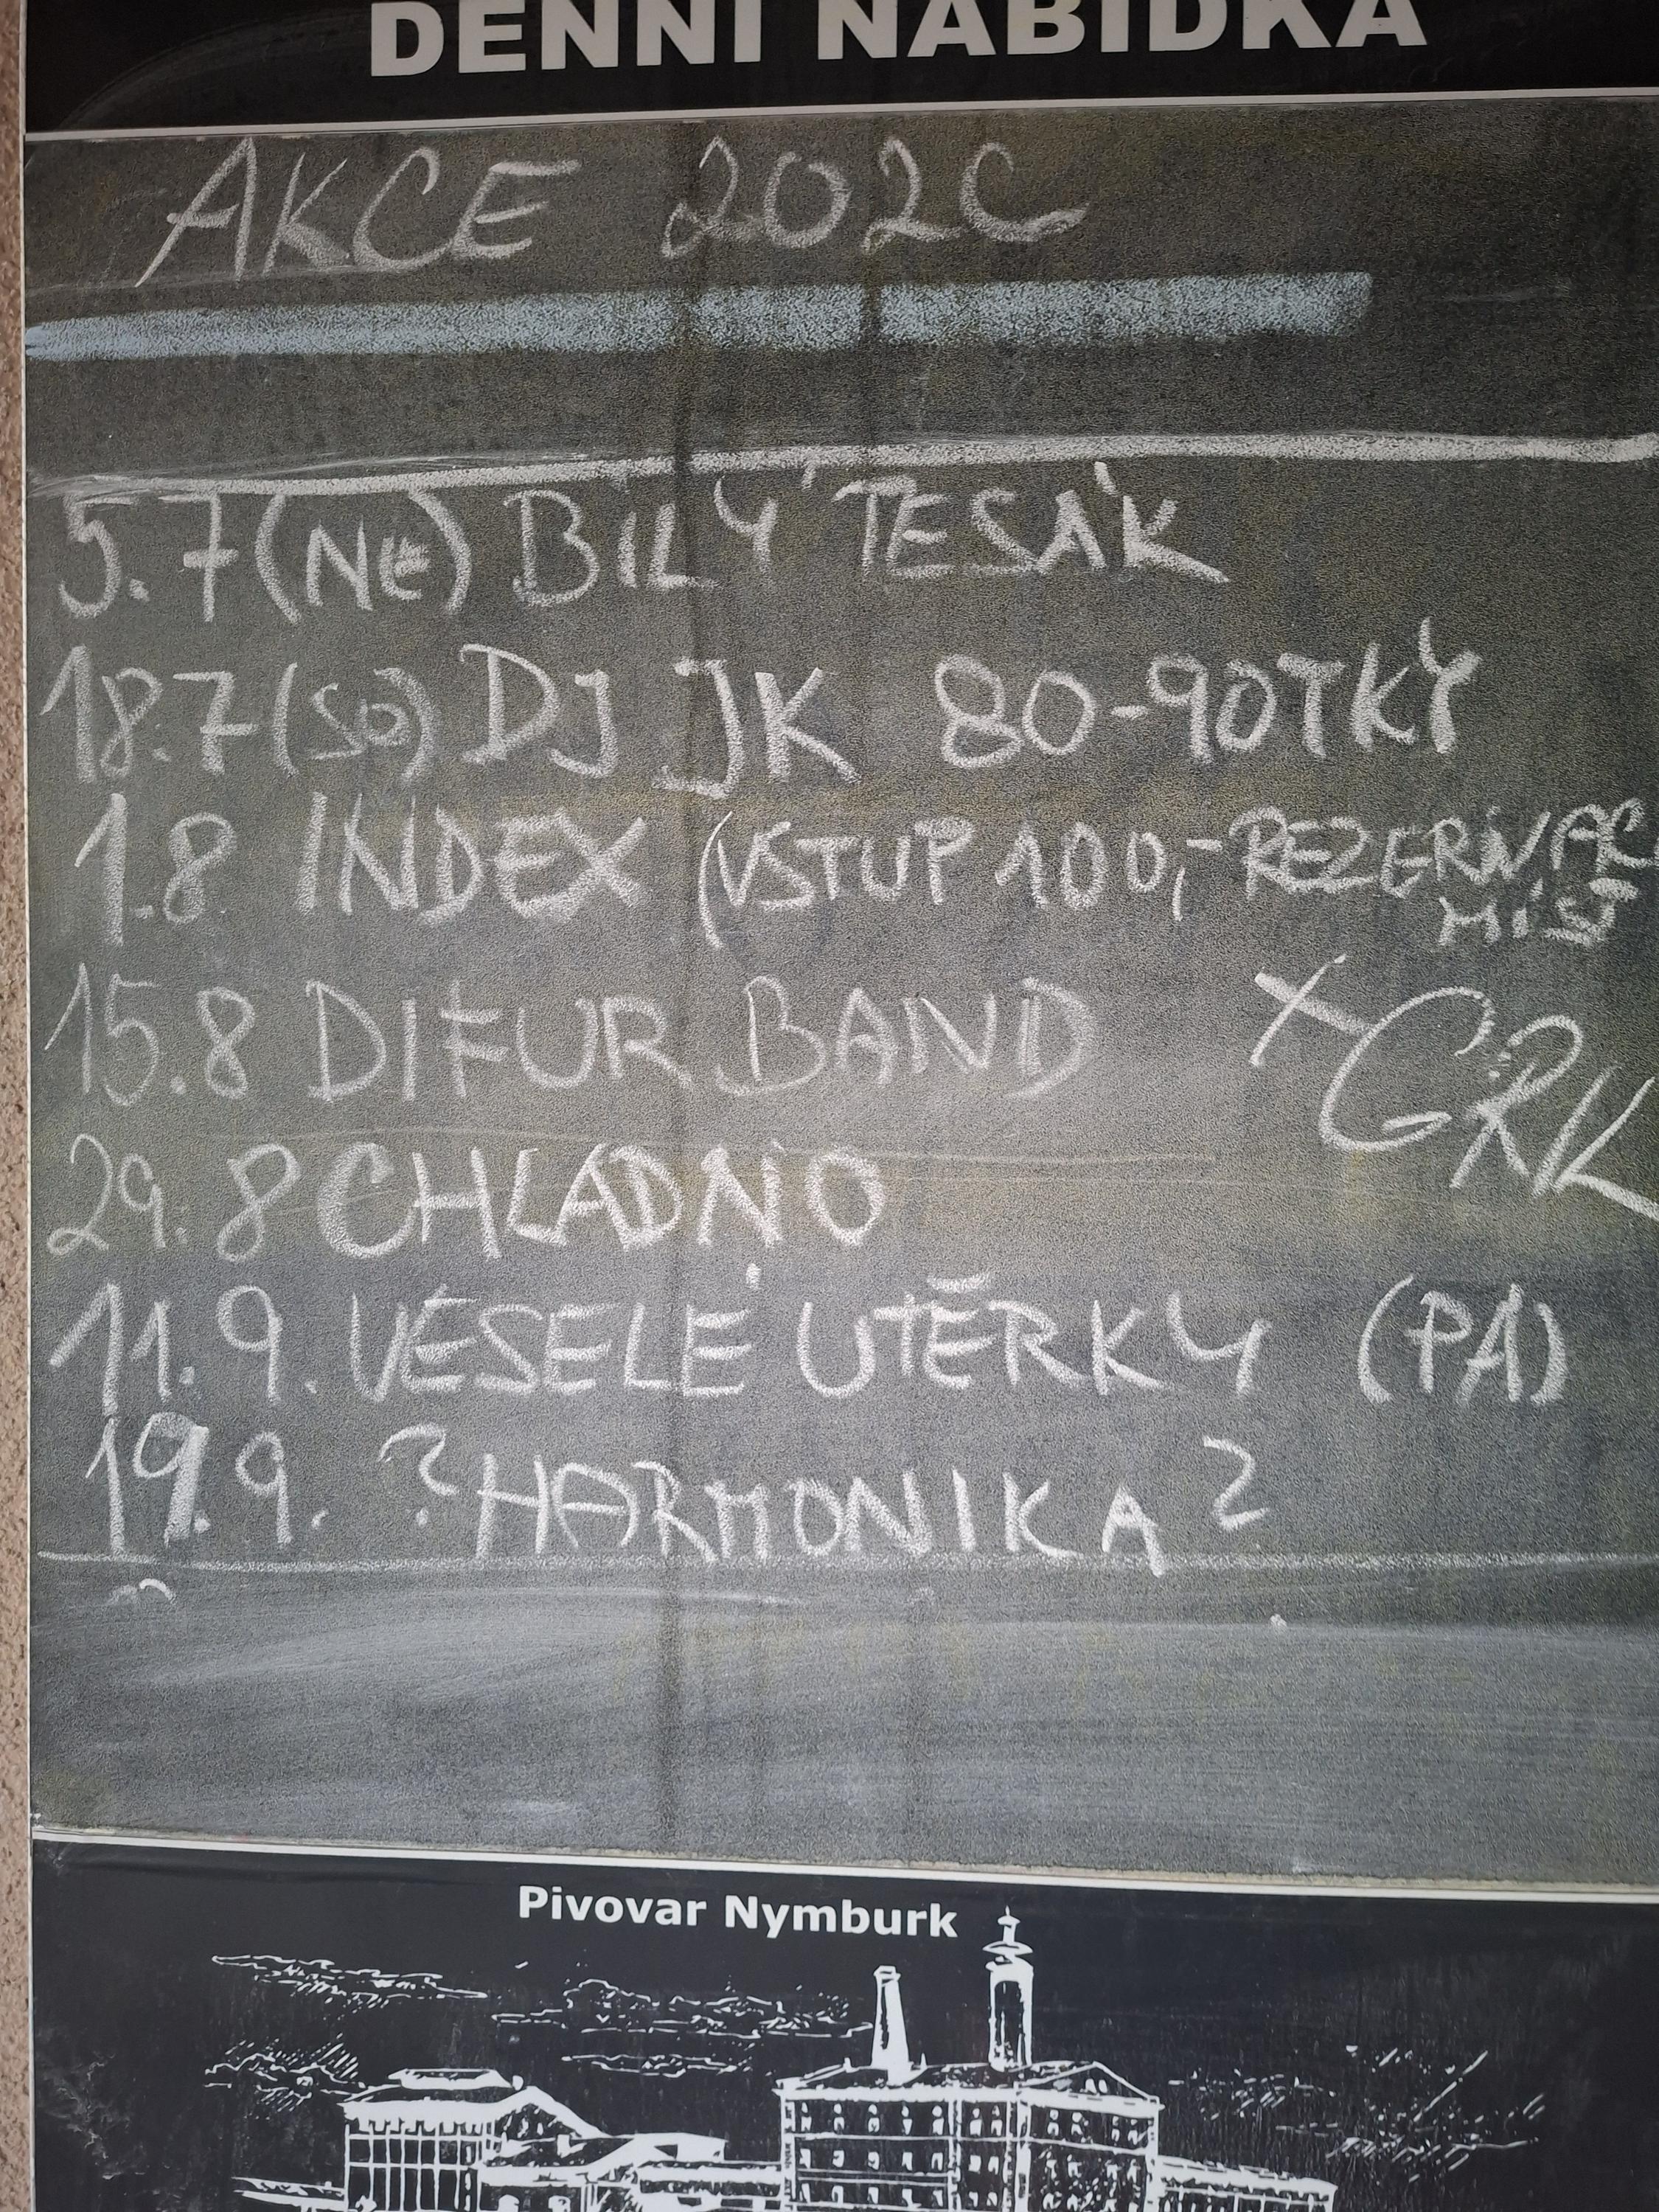 DENNÍ NABÍDKA
AKCE 2026
5.7 (NE) BÍLÝ TESÁK
18.7 (SO) DJ JK 80-90TKY
1.8 INDEX (VSTUP 100,- REZERVAC
MÍST
15.8 DIFUR BAND + GRK
29.8 CHLADNO
11.9. VESELÉ UTĚRKY (PÁ)
19.9. ?HARMONIKA?
Pivovar Nymburk